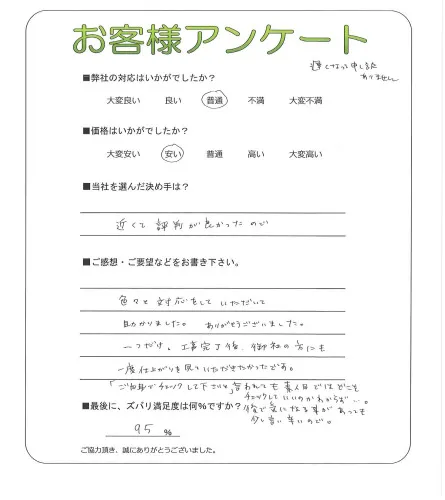 お客様アンケート
遅くなって申し訳
ありません
■弊社の対応はいかがでしたか？
大変良い 良い 普通 不満 大変不満
■価格はいかがでしたか？
大変安い 安い 普通 高い 大変高い
■当社を選んだ決め手は？
近くて 評判が良かったので
■ご感想・ご要望などをお書き下さい。
色々と対応をして いただいて
助かりました。 ありがとうございました。
一つだけ、工事完了後、御社の方にも
一度仕上がりを見ていただきたかったです。
「ご自身でチェックして下さい」と言われても 素人目ではどこを
チェックしていいのかわからず…。
後で気になる事があっても
少し言い辛いので。
■最後に、ズバリ満足度は何％ですか？
95 ％
ご協力頂き、誠にありがとうございました。